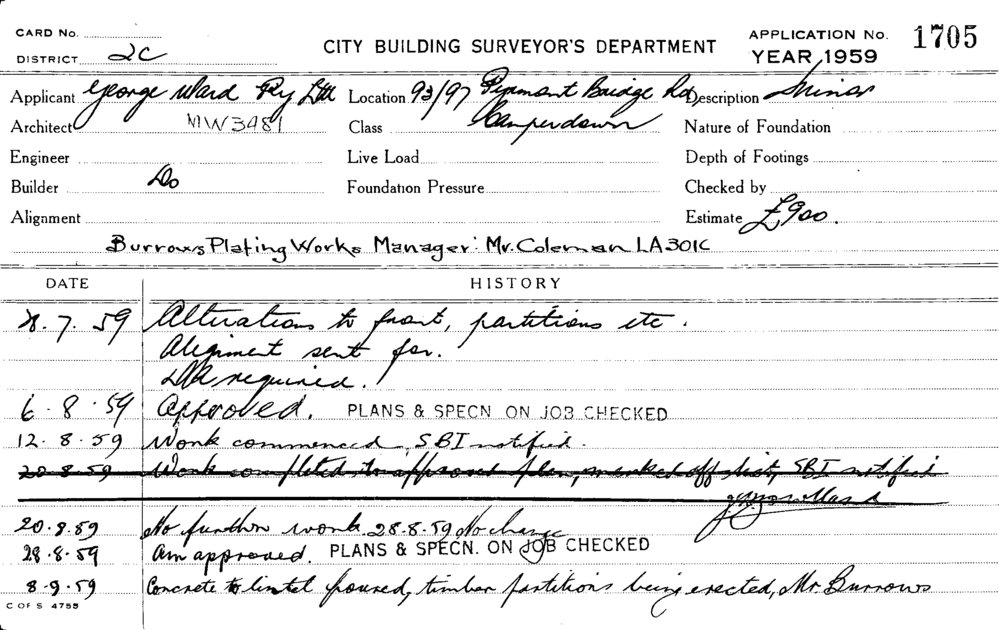 CARD No.
DISTRICT 2C
CITY BUILDING SURVEYOR'S DEPARTMENT
APPLICATION No. 1705
YEAR 1959
Applicant George Ward Pty Ltd Location 93/97 Pyrmont Bridge Rd Description Minor
Architect MW3481 Class Camperdown Nature of Foundation
Engineer Live Load Depth of Footings
Builder Do Foundation Pressure Checked by
Alignment Estimate £900.
Burrows Plating Works Manager: Mr. Coleman LA301C
DATE HISTORY
28.7.59 Alterations to front, partitions etc.
Alignment sent for.
required.
6.8.59 Approved. PLANS & SPECN ON JOB CHECKED
12.8.59 Work commenced, SBI notified.
20.8.59 Work completed to approved plan, marked off list, SBI notified
20.8.59 No further work. 28.8.59 No change
28.8.59 Am approved. PLANS & SPECN. ON JOB CHECKED
8.9.59 Concrete to lintel poured, timber partitions being erected, Mr. Burrows
C OF S 4755